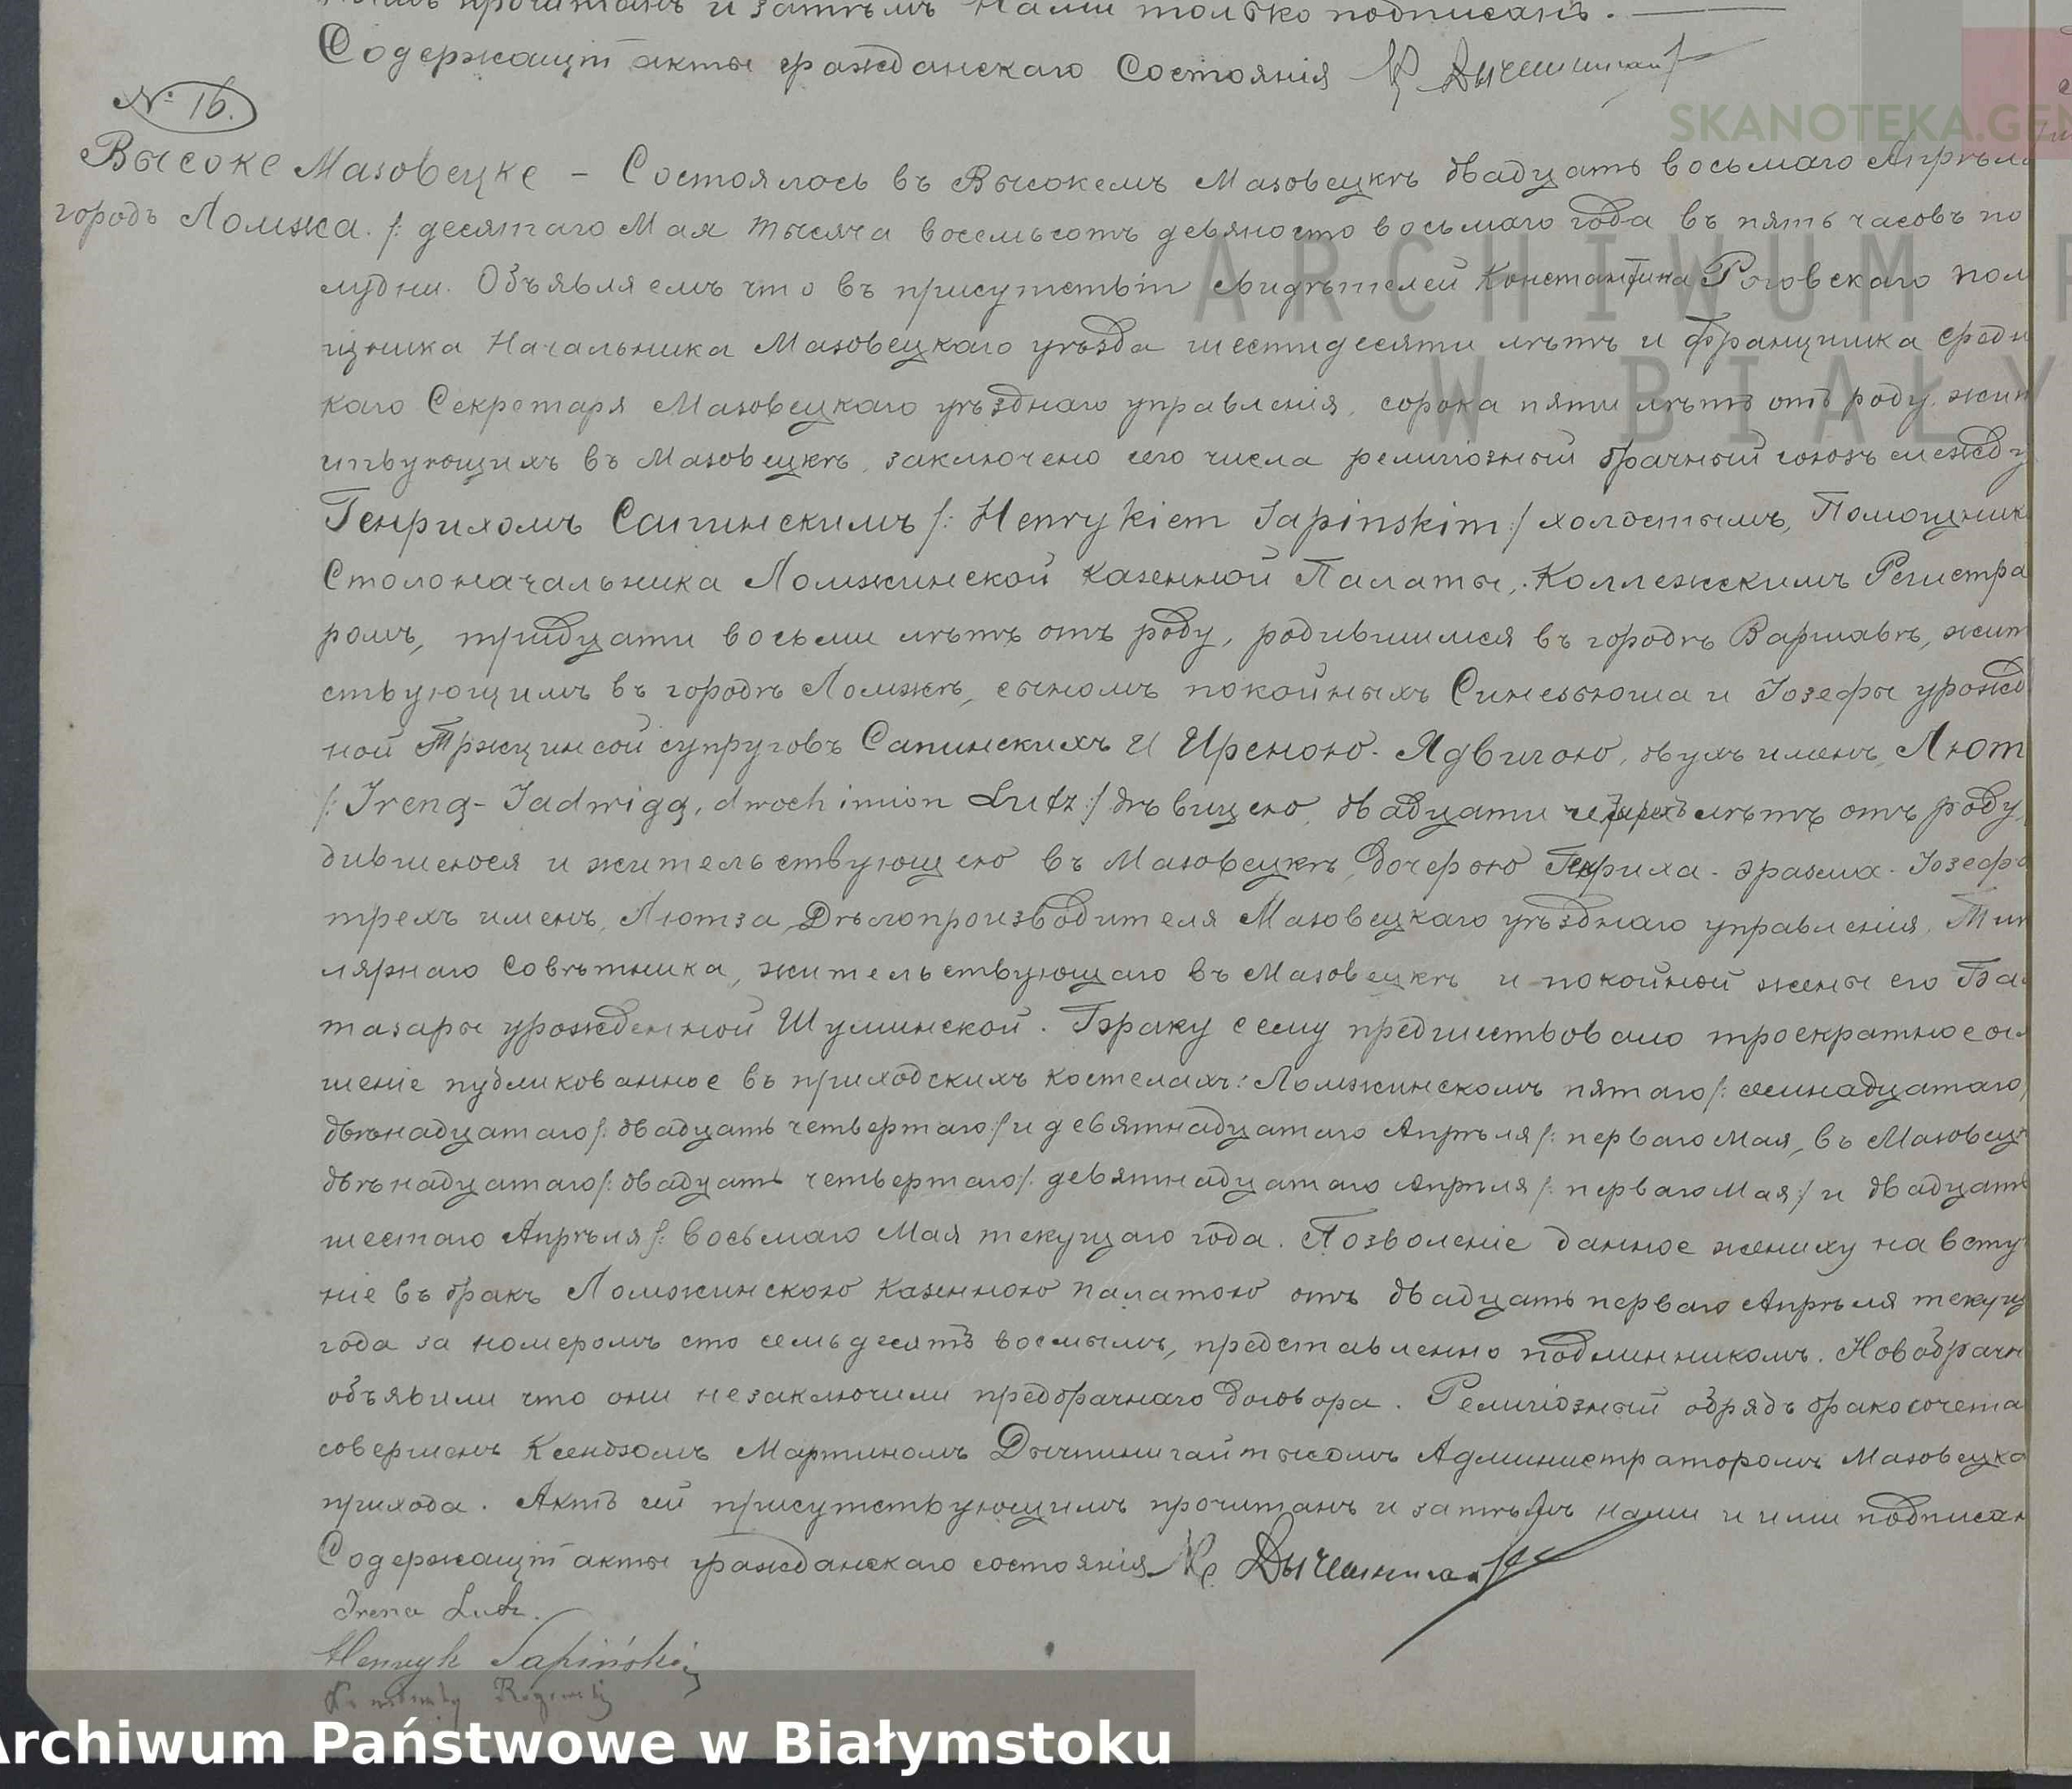 прочитанъ и затѣмъ Нами только подписанъ.
Содержащій акты гражданскаго Состоянія
SKANOTEKA.GEN
№ 16.
Высоке Мазовецке – Состоялось въ Высокемъ Мазовецкѣ двадцать восьмаго Апрѣля
городъ Ломжа. /: десятаго Мая тысяча восемьсотъ девяносто восьмаго года въ пять часовъ по
лудни. Объявляемъ что въ присутствіи свидѣтелей Константина Роговскаго пом
щника Начальника Мазовецкаго уѣзда шестидесяти лѣтъ и Францишка
каго Секретаря Мазовецкаго уѣзднаго управленія, сорока пяти лѣтъ отъ роду, жит
ствующихъ въ Мазовецкѣ, заключено сего числа религіозный брачный союзъ между
Генрихомъ Сапинскимъ /: Henrykiem Sapinskim :/ холостымъ, Помощник
Столоначальника Ломжинской Казенной Палаты, Коллежскимъ Регистра
ромъ, тридцати восьми лѣтъ отъ роду, родившимся въ городѣ Варшавѣ, жит
ствующимъ въ городѣ Ломжѣ, сыномъ покойныхъ и Іозефы урожд
ной супруговъ Сапинскихъ и Иреною-Ядвигою, двухъ именъ, Лют
/: Ireną-Jadwigą, dwoch imion Lutz :/ дѣвицею, двадцати четырехъ лѣтъ отъ роду,
дившеюся и жительствующею въ Мазовецкѣ, дочерью Генриха-Эразма-Іозефа
трехъ именъ, Лютза, Дѣлопроизводителя Мазовецкаго уѣзднаго управленія, Тит
лярнаго Совѣтника, жительствующаго въ Мазовецкѣ и покойной жены его
урожденной Шуминской. Браку сему предшествовало троекратное ог
шеніе публикованное въ приходскихъ костелахъ: Ломжинскомъ пятаго /: семнадцатаго,
двѣнадцатаго /: двадцать четвертаго :/ и девятнадцатаго Апрѣля /: перваго Мая, въ Мазовецк
двѣнадцатаго /: двадцать четвертаго /: девятнадцатаго Апрѣля /: перваго Мая :/ и двадцать
шестаго Апрѣля /: восьмаго Мая текущаго года. Позволеніе данное жениху на всту
ніе въ бракъ Ломжинскою Казенною палатою отъ двадцать перваго Апрѣля текущ
года за номеромъ сто семьдесятъ восмымъ, представленно подлинникомъ. Новобрачн
объявили что они незаключили предбрачнаго договора. Религіозный обрядъ бракосочета
совершенъ Ксендзомъ Мартиномъ Администраторомъ Мазовецка
прихода. Актъ сей присутствующимъ прочитанъ и затѣмъ нами и ими подписан
Содержащій акты гражданскаго состоянія Кс.
Irena Lutz.
Henryk Sapiński
Konstanty Rogowski
ARCHIWUM P
W BIAŁY
Archiwum Państwowe w Białymstoku